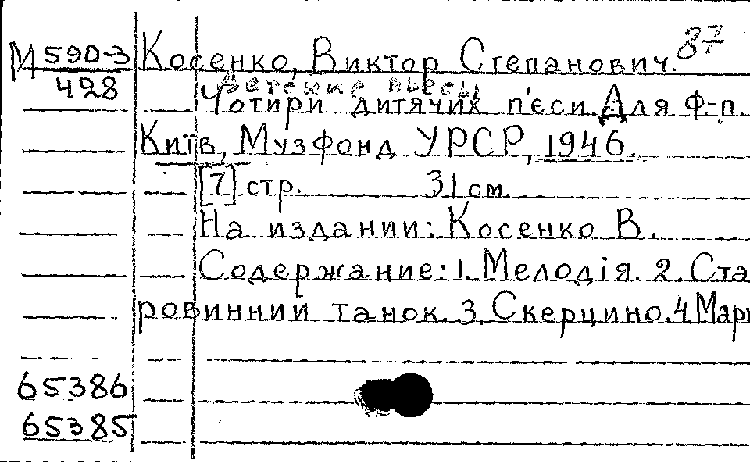 М 590-3 Косенко, Виктор Степанович. 87
428 Детские пьесы
Чотири дитячих п'єси. Для ф-п.
Київ, Музфонд УРСР, 1946.
[7] стр. 31 см.
На издании: Косенко В.
Содержание: 1. Мелодія. 2. Ста
ровинний танок. 3. Скерцино. 4 Марш
65386
65385